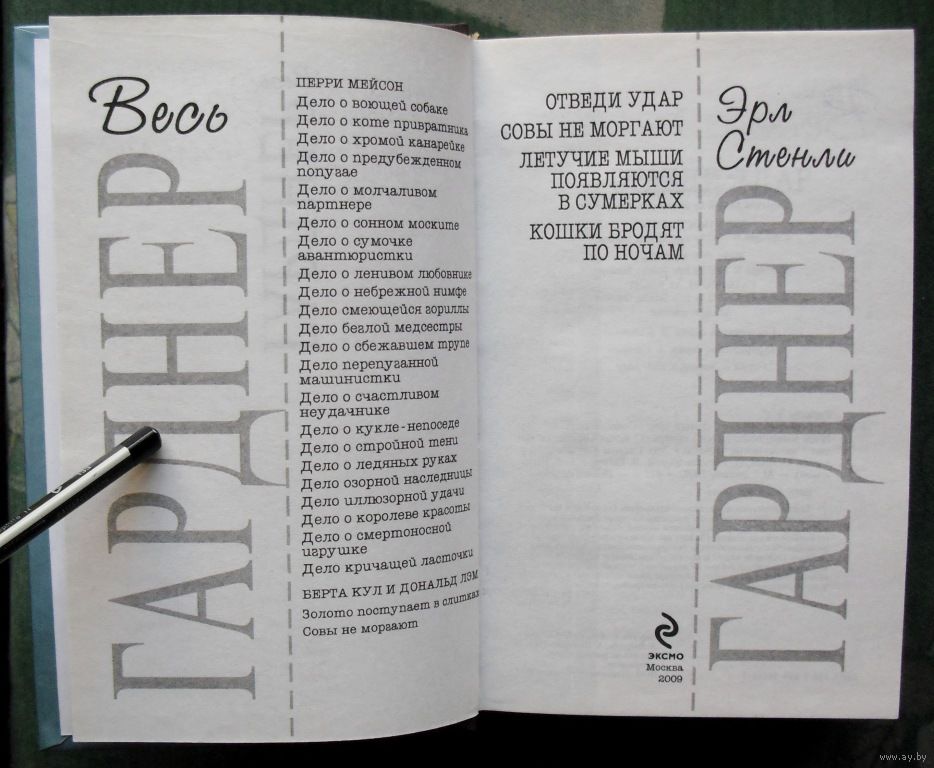 Весь
ГАРДНЕР
ПЕРРИ МЕЙСОН
Дело о воющей собаке
Дело о коте привратника
Дело о хромой канарейке
Дело о предубежденном
попугае
Дело о молчаливом
партнере
Дело о сонном моските
Дело о сумочке
авантюристки
Дело о ленивом любовнике
Дело о небрежной нимфе
Дело смеющейся гориллы
Дело беглой медсестры
Дело о сбежавшем трупе
Дело перепуганной
машинистки
Дело о счастливом
неудачнике
Дело о кукле-непоседе
Дело о стройной тени
Дело о ледяных руках
Дело озорной наследницы
Дело иллюзорной удачи
Дело о королеве красоты
Дело о смертоносной
игрушке
Дело кричащей ласточки
БЕРТА КУЛ И ДОНАЛЬД ЛЭМ
Золото поступает в слитках
Совы не моргают
ОТВЕДИ УДАР
СОВЫ НЕ МОРГАЮТ
ЛЕТУЧИЕ МЫШИ
ПОЯВЛЯЮТСЯ
В СУМЕРКАХ
КОШКИ БРОДЯТ
ПО НОЧАМ
Эрл
Стенли
ГАРДНЕР
ЭКСМО
Москва
2009
www.ay.by